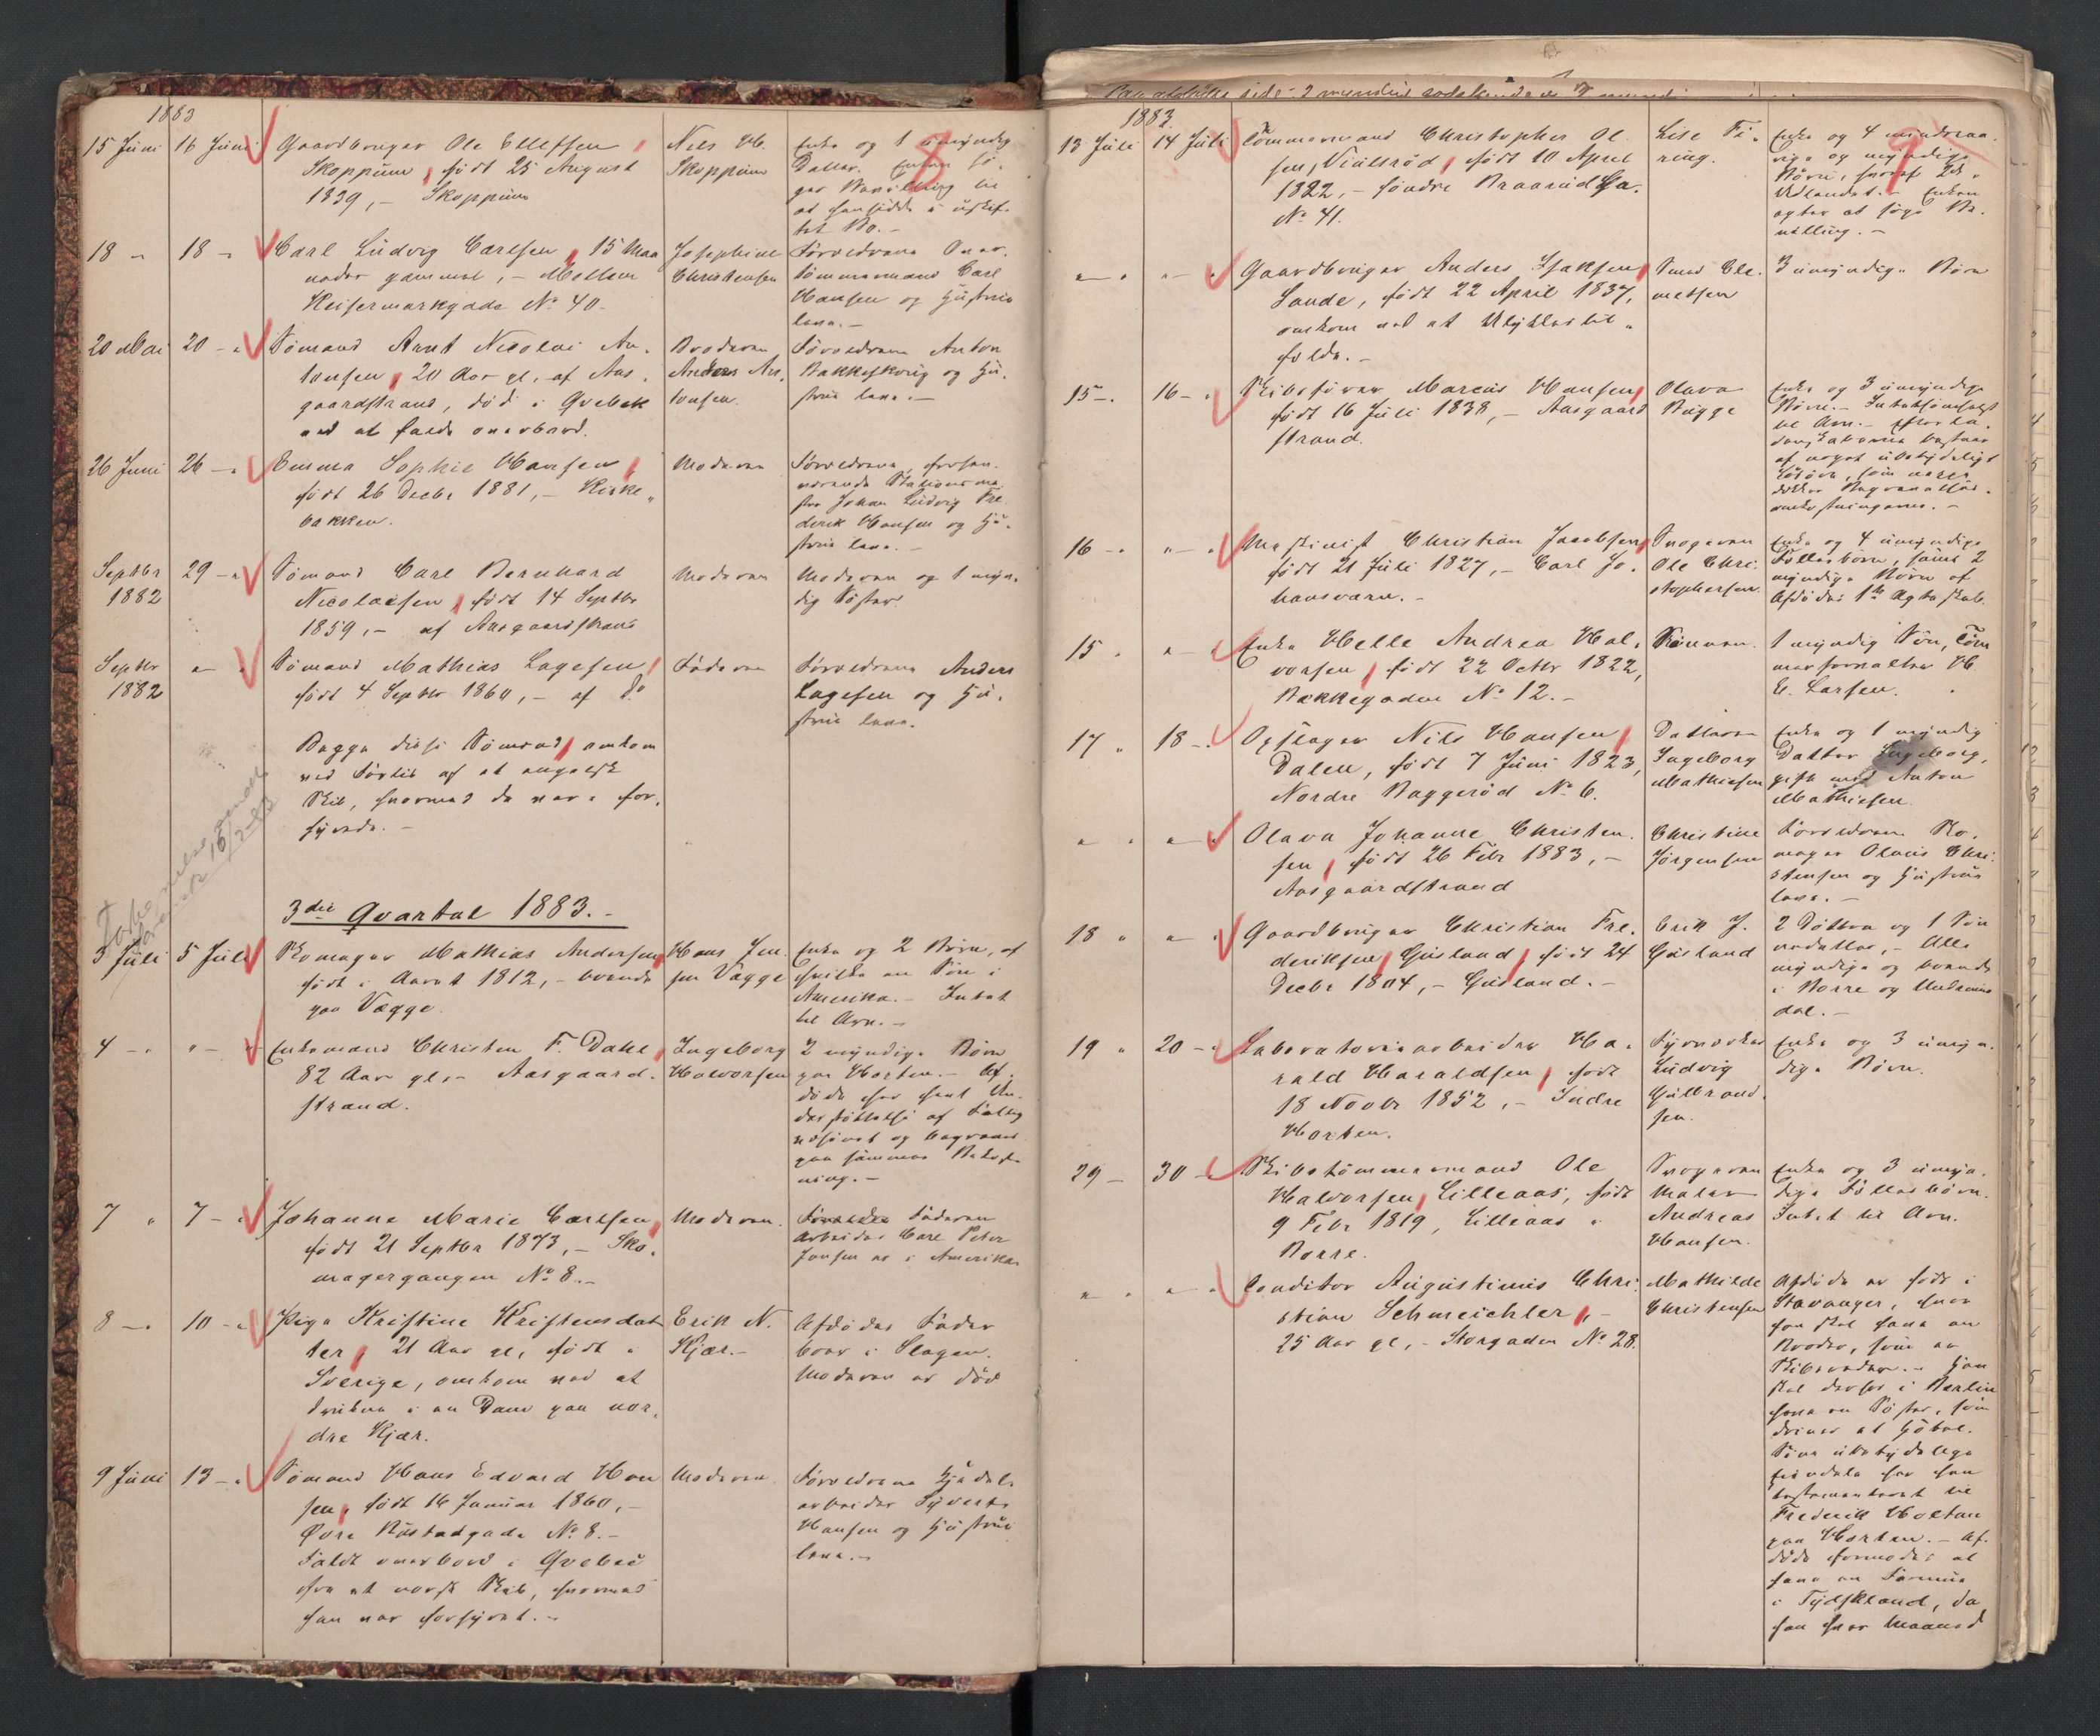 1883
15 Juni 16 Juni Gaardbruger Ole Ellefsen
Skoppum, født 25 August
1839, - Skoppum
Nils H.
Skoppum
Enke og 1 umyndig
Datter. Enken sø-
ger Bevilling til
at hensidde i uskif-
tet Bo. -
8
18 - 18 - Carl Ludvig Carlsen, 15 Maa
neder gammel, - Mellem
Keisermarkgade No 40.
Josephine
Christensen
Forældrene
Tømmermand Carl
Hansen og Hustru
leve. -
20 Mai 20 - Sømand Arnt Nicolai An-
tonsen, 20 Aar gl. af Aas-
gaardstrand, død i Qvebek
ved at falde overbord.
Broderen
Anders An-
tonsen.
Forældrene Anton
Bakkeskoug og Hu-
stru leve. -
26 Juni 26 - Emma Sophie Hansen,
født 26 Decbr 1881, - Kirke-
bakken.
Moderen
Forældrene, forhen-
værende Stationsme-
ster Johan Ludvig Fre
derik Hansen og Hu-
stru leve. -
Septbr
1882
29 - Sømand Carl Bernhard
Nicolaisen, født 14 Septbr
1859, - af Aasgaardstrand
Moderen
Moderen og 1 myn-
dig Søster.
Septbr
1882
" - Sømand Mathias Lagesen,
født 4 Septbr 1860, - af do
Faderen
Forældrene Anders
Lagesen og Hu-
stru leve.
Begge disse Sømænd omkom
ved Forlis af et engelsk
Skib, hvormed de vare for-
hyrede. -
3die Qvartal 1883. -
3 Juli 5 Juli Skomager Mathias Andersen,
født i Aaret 1812, - boende
paa Vægge.
Hans Jen-
sen Vægge
Enke og 2 Børn, af
hvilke en Søn i
Amerika. - Intet
til Arv. -
4 - " - Enkemand Christen F. Dahl,
82 Aar gl, - Aasgaard-
strand.
Ingeborg
Halvorsen
2 myndige Børn
paa Horten. - Af-
døde har havt Un-
derstøttelse af Fattig
væsenet og begraves
paa sammes Bekost-
ning. -
7 " 7 - Johanne Marie Carlsen,
født 21 Septbr 1873, - Sko-
magergangen No 8. -
Moderen.
Forældre Faderen
Arbeider Carl Peter
Jensen er i Amerika
8 - 10 - Pige Kristine Kristensdat
ter, 21 Aar gl, født i
Sverige, omkom ved at
drukne i en Dam paa nor-
dre Kjær.
Erik N.
Kjær. -
Afdødes Fader
boer i Slagen.
Moderen er død
9 Juni 13 - Sømand Hans Edvard Han
sen, født 16 Januar 1860, -
Øvre Rustadgade No 8. -
Faldt overbord i Qvebec
fra et norsk Skib, hvormed
han var forhyret. -
Moderen.
Forældrene
arbeider Syvert
Hansen og Hustru
leve. -
1883.
13 Juli 14 Juli Tømmermand Christopher Ol-
sen, født 10 April
1822, - søndre Braarud
No 41.
Lise Fi-
ring.
Enke og 4 mindreaa-
rige og myndige
Børn, hvoraf
Udlandet. - Enken
agter at søge Be-
villing. -
9
" " " - Gaardbruger Anders Isaksen
Sande, født 22 April 1837,
omkom ved et Ulykkestil-
fælde. -
Svend Cle-
metsen
3 umyndige Børn
15 - 16 - Skibsfører Marcus Hansen,
født 16 Juli 1838, - Aasgaard
strand.
Olava
Bugge
Enke og 3 umyndige
Børn. -
til Arv. -
af noget ubetydeligt
Indbo, som neppe
dækker Begravelses-
omkostningerne. -
16 - " - Maskinist Christian Jacobsen,
født 21 Juli 1827, - Carl Jo-
hansværn. -
Svogeren
Ole Chri-
stophersen
Enke og 4 umyndige
Fællesbørn, samt 2
myndige Børn af
Afdødes 1ste Ægteskab.
15 " " - Enke Helle Andrea Hal-
vorsen, født 22 Octbr 1822,
Bakkegaden No 12. -
Sønnen.
1 myndig Søn, Tøm
merforvalter H.
E. Larsen.
17 " 18 - Opslager Nils Hansen
Dalen, født 7 Juni 1823,
Nordre Baggerød No 6.
Datteren
Ingeborg
Mathiesen
Enke og 1 myndig
Datter Ingeborg,
gift med Anton
Mathiesen.
" " " - Olava Johanne Christen-
sen, født 26 Febr 1883, -
Aasgaardstrand
Christine
Jørgensen
Forældrene Sko-
mager Olaus Chri-
stensen og Hustru
leve. -
18 " " - Gaardbruger Christian Fre-
deriksen Gusland, født 24
Decbr 1804, - Gusland. -
Erik J.
Gusland
2 Døttre og 1 Søn
- Alle
myndige og boende
i Borre og Undrums
dal. -
19 " 20 - Laboratoriearbeider Ha-
rald Haraldsen, født
18 Novbr 1852, - Indre
Horten.
Fyrvorker
Ludvig
Gulbrand-
sen.
Enke og 3 umyn-
dige Børn.
29 - 30 - Skibstømmermand Ole
Halvorsen Lilleaas, født
9 Febr 1819, Lilleaas i
Borre.
Svogeren
Maler
Andreas
Hansen.
Enke og 3 umyn-
dige Fællesbørn.
Intet til Arv.
" " " - Conditor Augustinus Chri-
stian Schmeichler, -
25 Aar gl, - Storgaden No 28.
Mathilde
Christensen
Afdøde er født i
Stavanger, hvor
han skal have en
Broder, som er
Skibsreder. - Han
skal derhos i Berlin
have en Søster, som
driver et Hotel.
Sine ubetydelige
Eiendele har han
testamenteret til
Frederik Holtan
paa Horten. - Af-
døde formodes at
have en Formue
i Tydskland, da
han hver Maaned